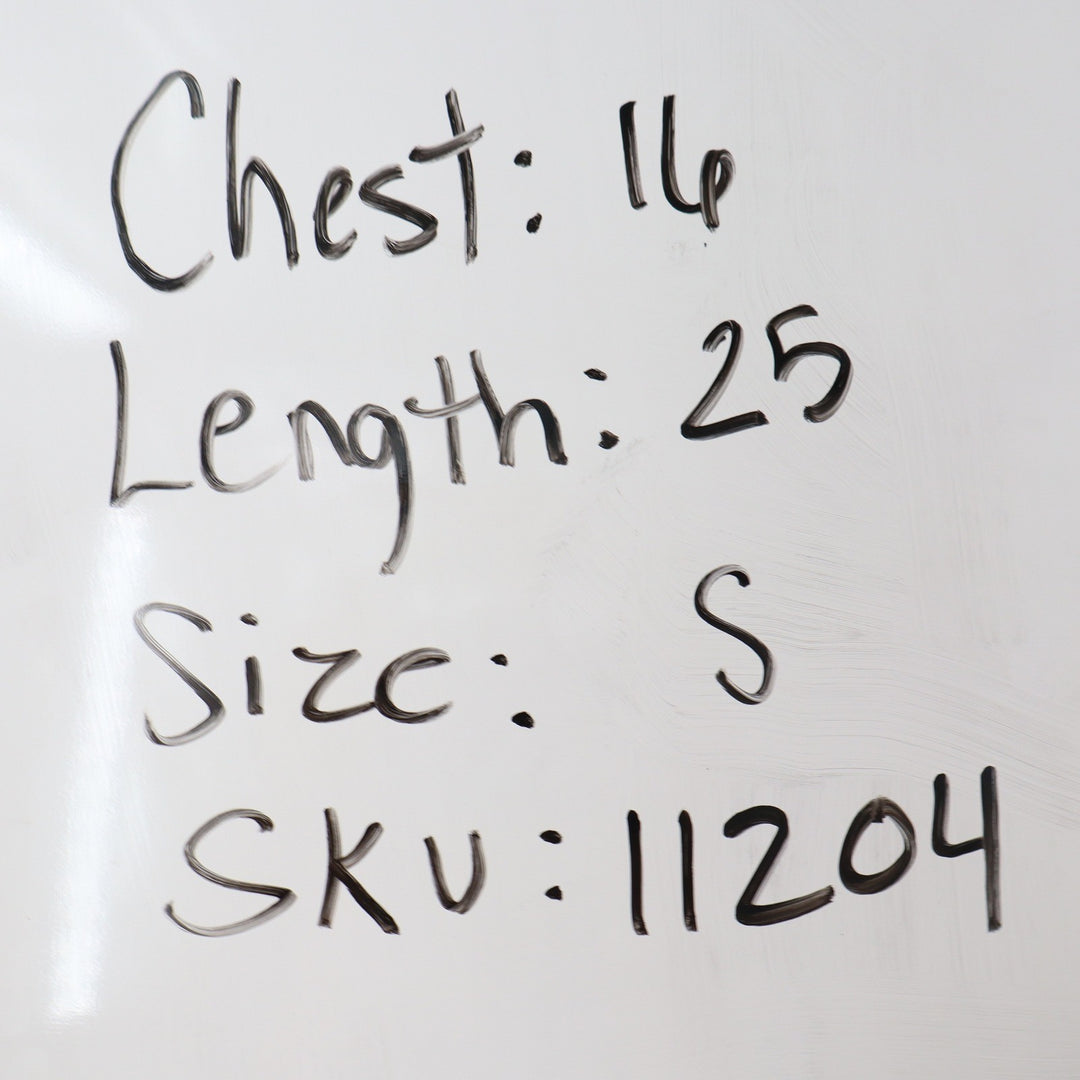 Chest: 16
Length: 25
Size: S
SKU: 11204